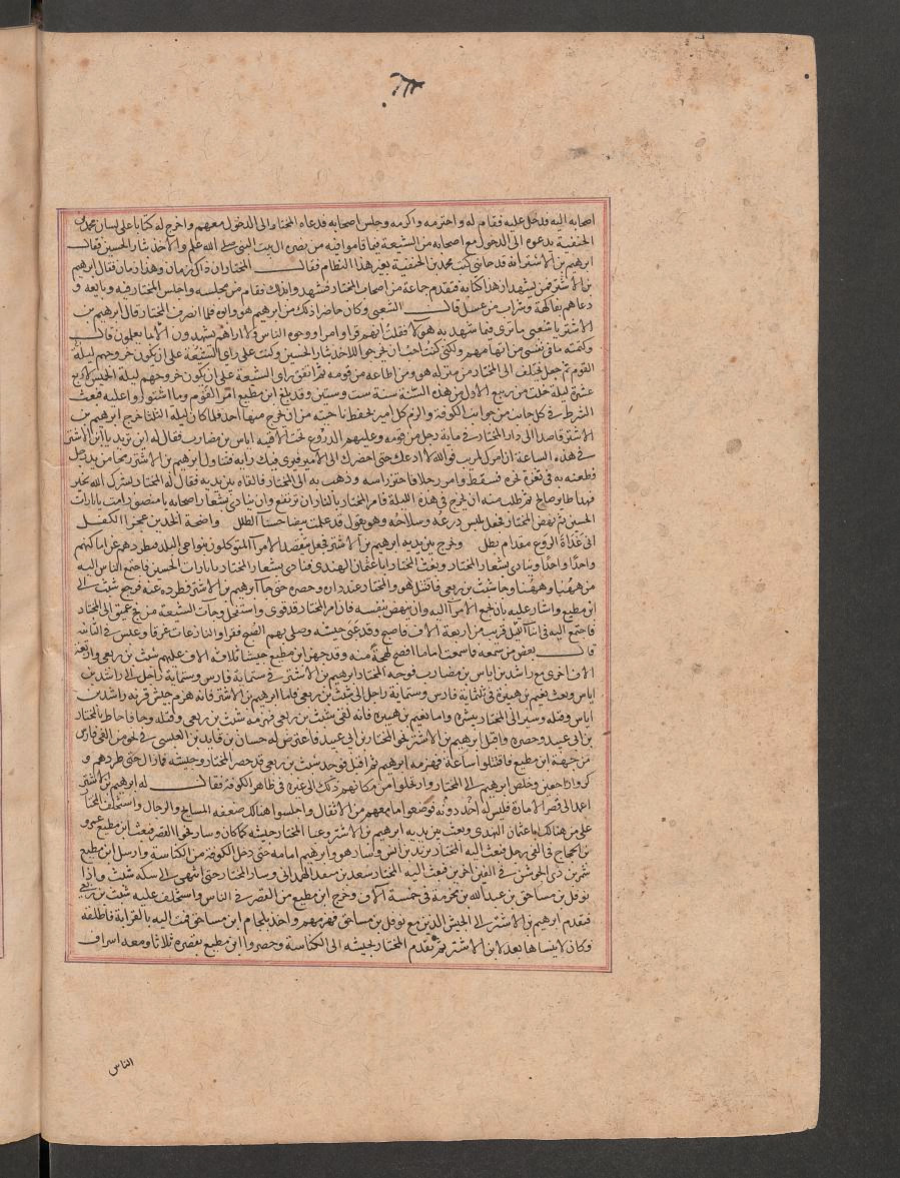 اصحابه اليه فدخل عليه فقام له واحترمه واكرمه وجلس اصحابه فدعاه المختار الى الدخول معهم واخرج له كتابا على لسان محمد بن
الحنفية يدعوه الى الدخول مع اصحابه من الشيعة فيما قاموا فيه من نصرة ال بيت النبي صلى الله علم والاخذ بثار الحسين فقال
ابرهيم بن الاشتر انه قد جاءني كتب محمد بن الحنفية بغير هذا النظام فقال المختار ان ذاك زمان وهذا زمان فقال ابرهيم
بن الاشتر فمن يشهد ان هذا كتابه فتقدم جماعة من اصحاب المختار فشهدوا بذلك فقام من مجلسه واجلس المختار فيه وبايعه و
دعا لهم بفاكهة وشراب من عسل قال الشعبي وكان حاضرا ذلك من ابرهيم هو وابوه فلما انصرف المختار قال ابرهيم بن
الاشتر يا شعبي ما ترى فيما شهد به هولا فقلت انهم قرا وامرا ووجوه الناس ولا اراهم يشهدون الا بما يعلمون قال
وكتمته ما في نفسي من اتهامهم ولكني كنت احب ان يخرجوا للاخذ بثار الحسين وكنت على راي
القوم ثم جعل يختلف الى المختار من منزله هو ومن اطاعه من قومه ثم اتفق راي الشيعة على ان يكون خروجهم ليلة الخميس لاربع
عشرة ليلة خلت من ربيع الاول من هذه السنة سنة ست وستين وقد بلغ ابن مطيع امر القوم وما اشتوروا عليه فبعث
الشرط في كل جانب من جوانب الكوفة والزم كل امير بحفظ ناحيته من ان يخرج منها احد فلما كان ليلة الثلثا خرج ابرهيم بن
الاشتر قاصدا الى دار المختار في ماية رجل من قومه وعليهم الدروع تحت الاقبيه اياس بن مضارب فقال له اين تريد يا ابن الاشتر
في هذه الساعة ان امرك لمريب فوالله لا ادعك حتى احضرك الى الامير فيرى فيك رايه فتناول ابرهيم بن الاشتر رمحا من يد رجل
فطعنه به في ثغرة نحره فسقط وامر رجلا فاحتز راسه وذهب به الى المختار فالقاه بين يديه فقال له المختار بشرك الله بخير
فهذا طاير صالح ثم طلب منه ان يخرج في هذه الليلة فامر المختار بالنار ان ترتفع وان ينادى بشعار اصحابه يا منصور امت يا ثارات
الحسين ثم نهض المختار فجعل يلبس درعه وسلاحه وهو يقول قد علمت بيضا حسنا الطلل واضحة الخدين عجزا الكفل
اني غداة الروع مقدام بطل وخرج بين يديه ابرهيم بن الاشتر فجعل يتقصد الامرا الموكلون بنواحي البلد فطردهم عن اماكنهم
واحدا واحدا وينادي بشعار المختار وبعث المختار ابا عثمان الهندي فنادى بشعار المختار يا ثارات الحسين فاجتمع الناس اليه
من ههنا وههنا وجا شبث بن ربعي فاقتتل هو والمختار عند داره وحصره حتى جا ابرهيم بن الاشتر فطرده عنه فرجع شبث الى
ابن مطيع واشار عليه بان يجمع الامرا اليه وان ينهض بنفسه فان امر المختار قد قوى واستفحل وجات الشيعة من كل فج عميق الى المختار
فاجتمع اليه في اثنا الليل قريب من اربعة الاف فاصبح وقد عبى جيشه وصلى بهم الصبح فقرا والنازعات غرقا وعبس في الثانيه
قال بعض من سمعه فما سمعت اماما افصح لهجة منه وقد جهز ابن مطيع جيشا ثلاثة الاف عليهم شبث بن ربعي واربعة
الاف اخرى مع راشد بن اياس بن مضارب فوجه المختار ابرهيم بن الاشتر في ستماية فارس وستماية راجل الى راشد بن
اياس وبعث نعيم بن هبيرة في ثلثماية فارس وستماية راجل الى شبث بن ربعي فاما ابرهيم بن الاشتر فانه هزم جيش قرنه راشد بن
اياس وقتله وسير الى المختار يبشره واما نعيم بن هبيرة فانه لقى شبث بن ربعي فهزمه شبث بن ربعي وقتله وجا فاحاط بالمختار
بن ابي عبيد وحصره واقبل ابرهيم بن الاشتر نحو المختار بن ابي عبيد فاعترض له حسان بن فايد بن العبسي في نحو من الفي فارس
من جهة ابن مطيع فاقتتلوا ساعة فهزمه ابرهيم ثم اقبل فوجد شبث بن ربعي قد حصر المختار وجيشه فما زال حتى طردهم و
كروا راجعين وخلص ابرهيم الى المختار وارتحلوا من مكانهم ذلك الى غيره في ظاهر الكوفة فقال له ابرهيم بن الاشتر
اعمد الى قصر الامارة فليس له احد دونه فوضعوا ما معهم من الاثقال واجلسوا هنالك ضعفه المسايخ والرجال واستخلف المختار
على من هنالك ابا عثمان الهندي وبعث بين يديه ابرهيم بن الاشتر وعبا المختار جيشه كما كان وسار نحو القصر فبعث ابن مطيع عمرو
بن الحجاج في الفي رجل فبعث اليه المختار يزيد بن انس وسار هو وابرهيم امامه حتى دخل الكوفة من الكناسة وارسل ابن مطيع
شمر بن ذي الجوشن في الفين اخرين فبعث اليه المختار سعد بن منقذ الهمداني وسار المختار حتى انتهى الى سكه شبث واذا
نوفل بن مساحق بن عبدالله بن مخرمة في خمسة الاف وخرج ابن مطيع من القصر في الناس واستخلف عليه شبث بن ربعي
فتقدم ابرهيم بن الاشتر الى الجيش الذين مع نوفل بن مساحق فهزمهم واخذ بلجام ابن مساحق فمت اليه بالقرابة فاطلقه
وكان لا ينساها بعد لابن الاشتر ثم تقدم المختار بجيشه الى الكناسة وحصروا ابن مطيع بقصره ثلاثا ومعه اشراف
الناس